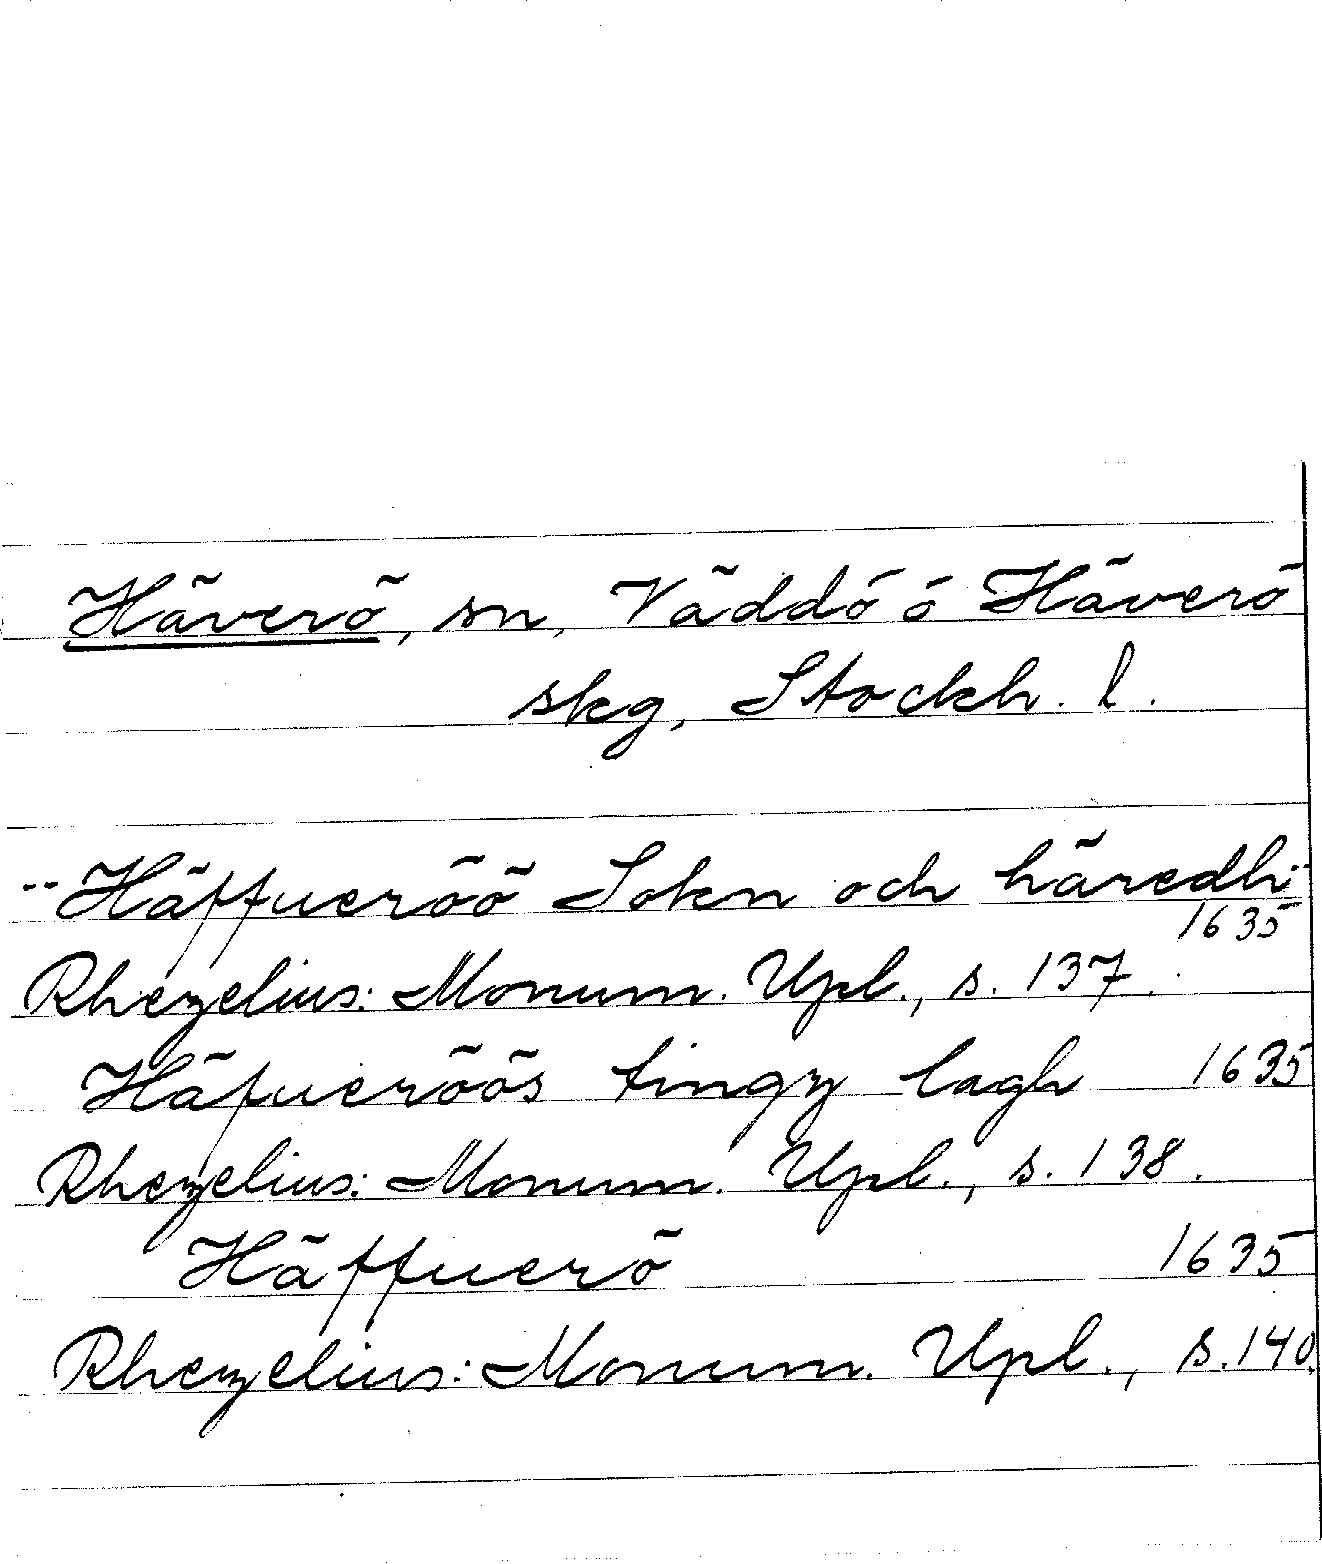 Häverö, sn, Väddö o Häverö
skg, Stockh. l.
--Häffueröö Sokn och häredh--
1635
Rhezelius: Monum. Upl., s. 137.
Häfueröös tingz lagh 1635
Rhezelius: Monum. Upl., s. 138.
Häffuerö 1635
Rhezelius: Monum. Upl., s. 140.